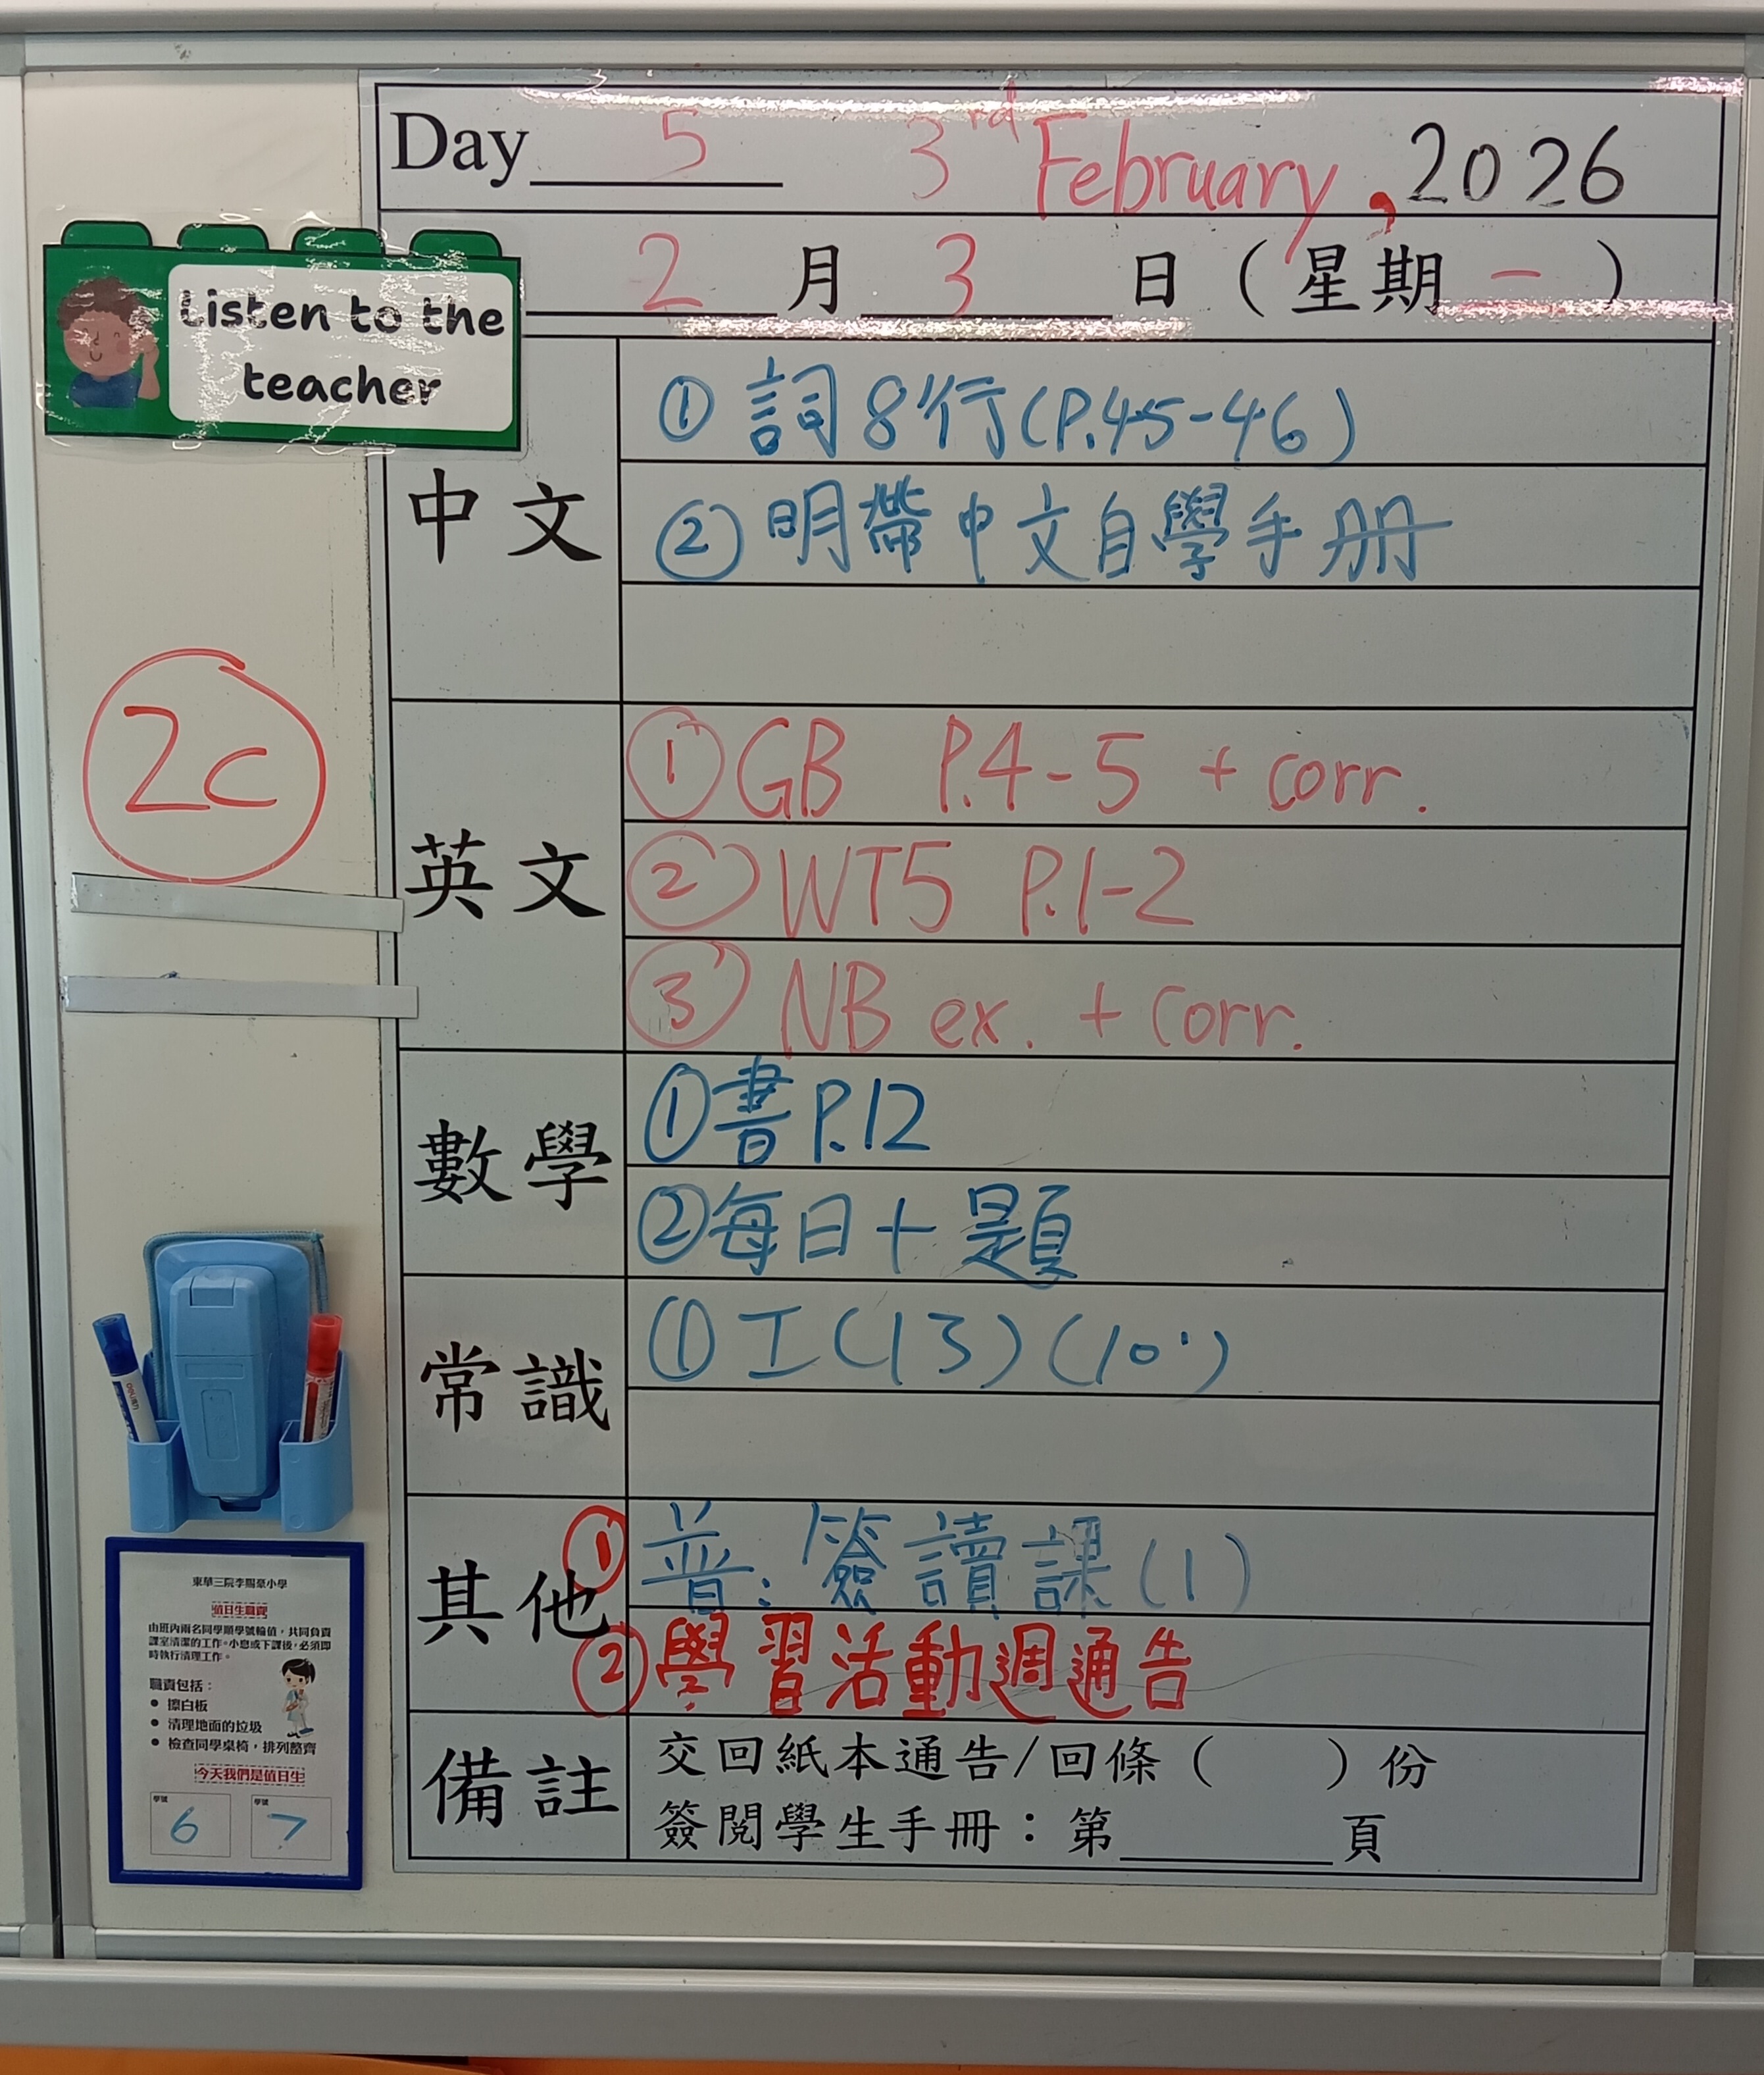 Day 5 3rd February, 2026
2月3日(星期一)
Listen to the
teacher
中文
① 詞8行(P.45-46)
② 明帶中文自學手冊
2C
英文
① GB P.4-5 + corr.
② WT5 P.1-2
③ NB ex. + corr.
數學
① 書P.12
② 每日十題
常識
① 工(13)(10')
其他
① 普:簽讀課(1)
② 學習活動週通告
備註
交回紙本通告/回條( )份
簽閱學生手冊:第______頁
東華三院李賜豪小學
值日生職責
由班內兩名同學順學號輪值,共同負責
課室清潔的工作。小息或下課後,必須即
時執行清理工作。
職責包括:
● 擦白板
● 清理地面的垃圾
● 檢查同學桌椅,排列整齊
今天我們是值日生
學號 學號
6 7